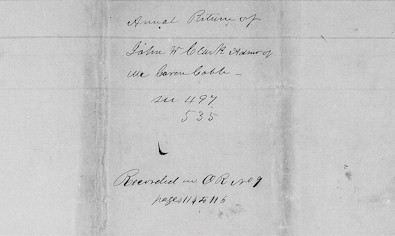 Annual Return of
John W Clark Admr of
Caron Cobb -
su 497
535
Recorded in OR No 9
pages 114 & 116